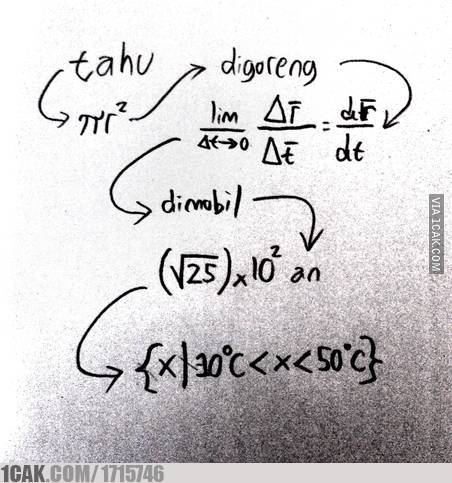 tahu digoreng
πr² lim Δt→0 Δr̄/Δt̄ = dr̄/dt
dimobil
(√25)×10² an
{x|30°C<x<50°C}
VIA 1CAK.COM
1CAK.COM/1715746